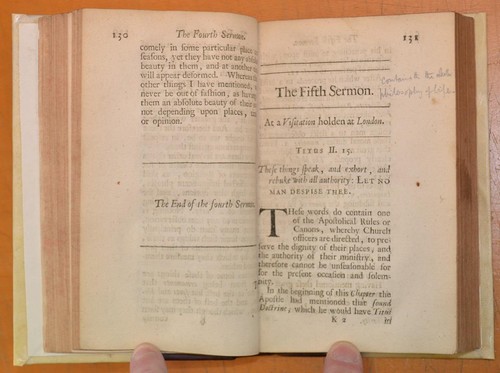 130
The Fourth Sermon.
comely in some particular place or
seasons, yet they have not any absolute
beauty in them, and at another
will appear deformed. Whereas the
other things I have mentioned,
never be out of fashion, as having
them an absolute beauty of their
not depending upon places,
or opinion.
The End of the fourth Sermon.
131
The Fifth Sermon.
At a Visitation holden at London.
TITUS II. 15.
These things speak, and exhort, and
rebuke with all authority: LET NO
MAN DESPISE THEE.
THese words do contain one
of the Apostolical Rules or
Canons, whereby Church
officers are directed, to pre-
serve the dignity of their places, and
the authority of their ministry, and
therefore cannot be unseasonable for
for the present occasion and solem-
nity.
In the beginning of this Chapter the
Apostle had mentioned that sound
Doctrine, which he would have Titus
K 2
philosophy of life.